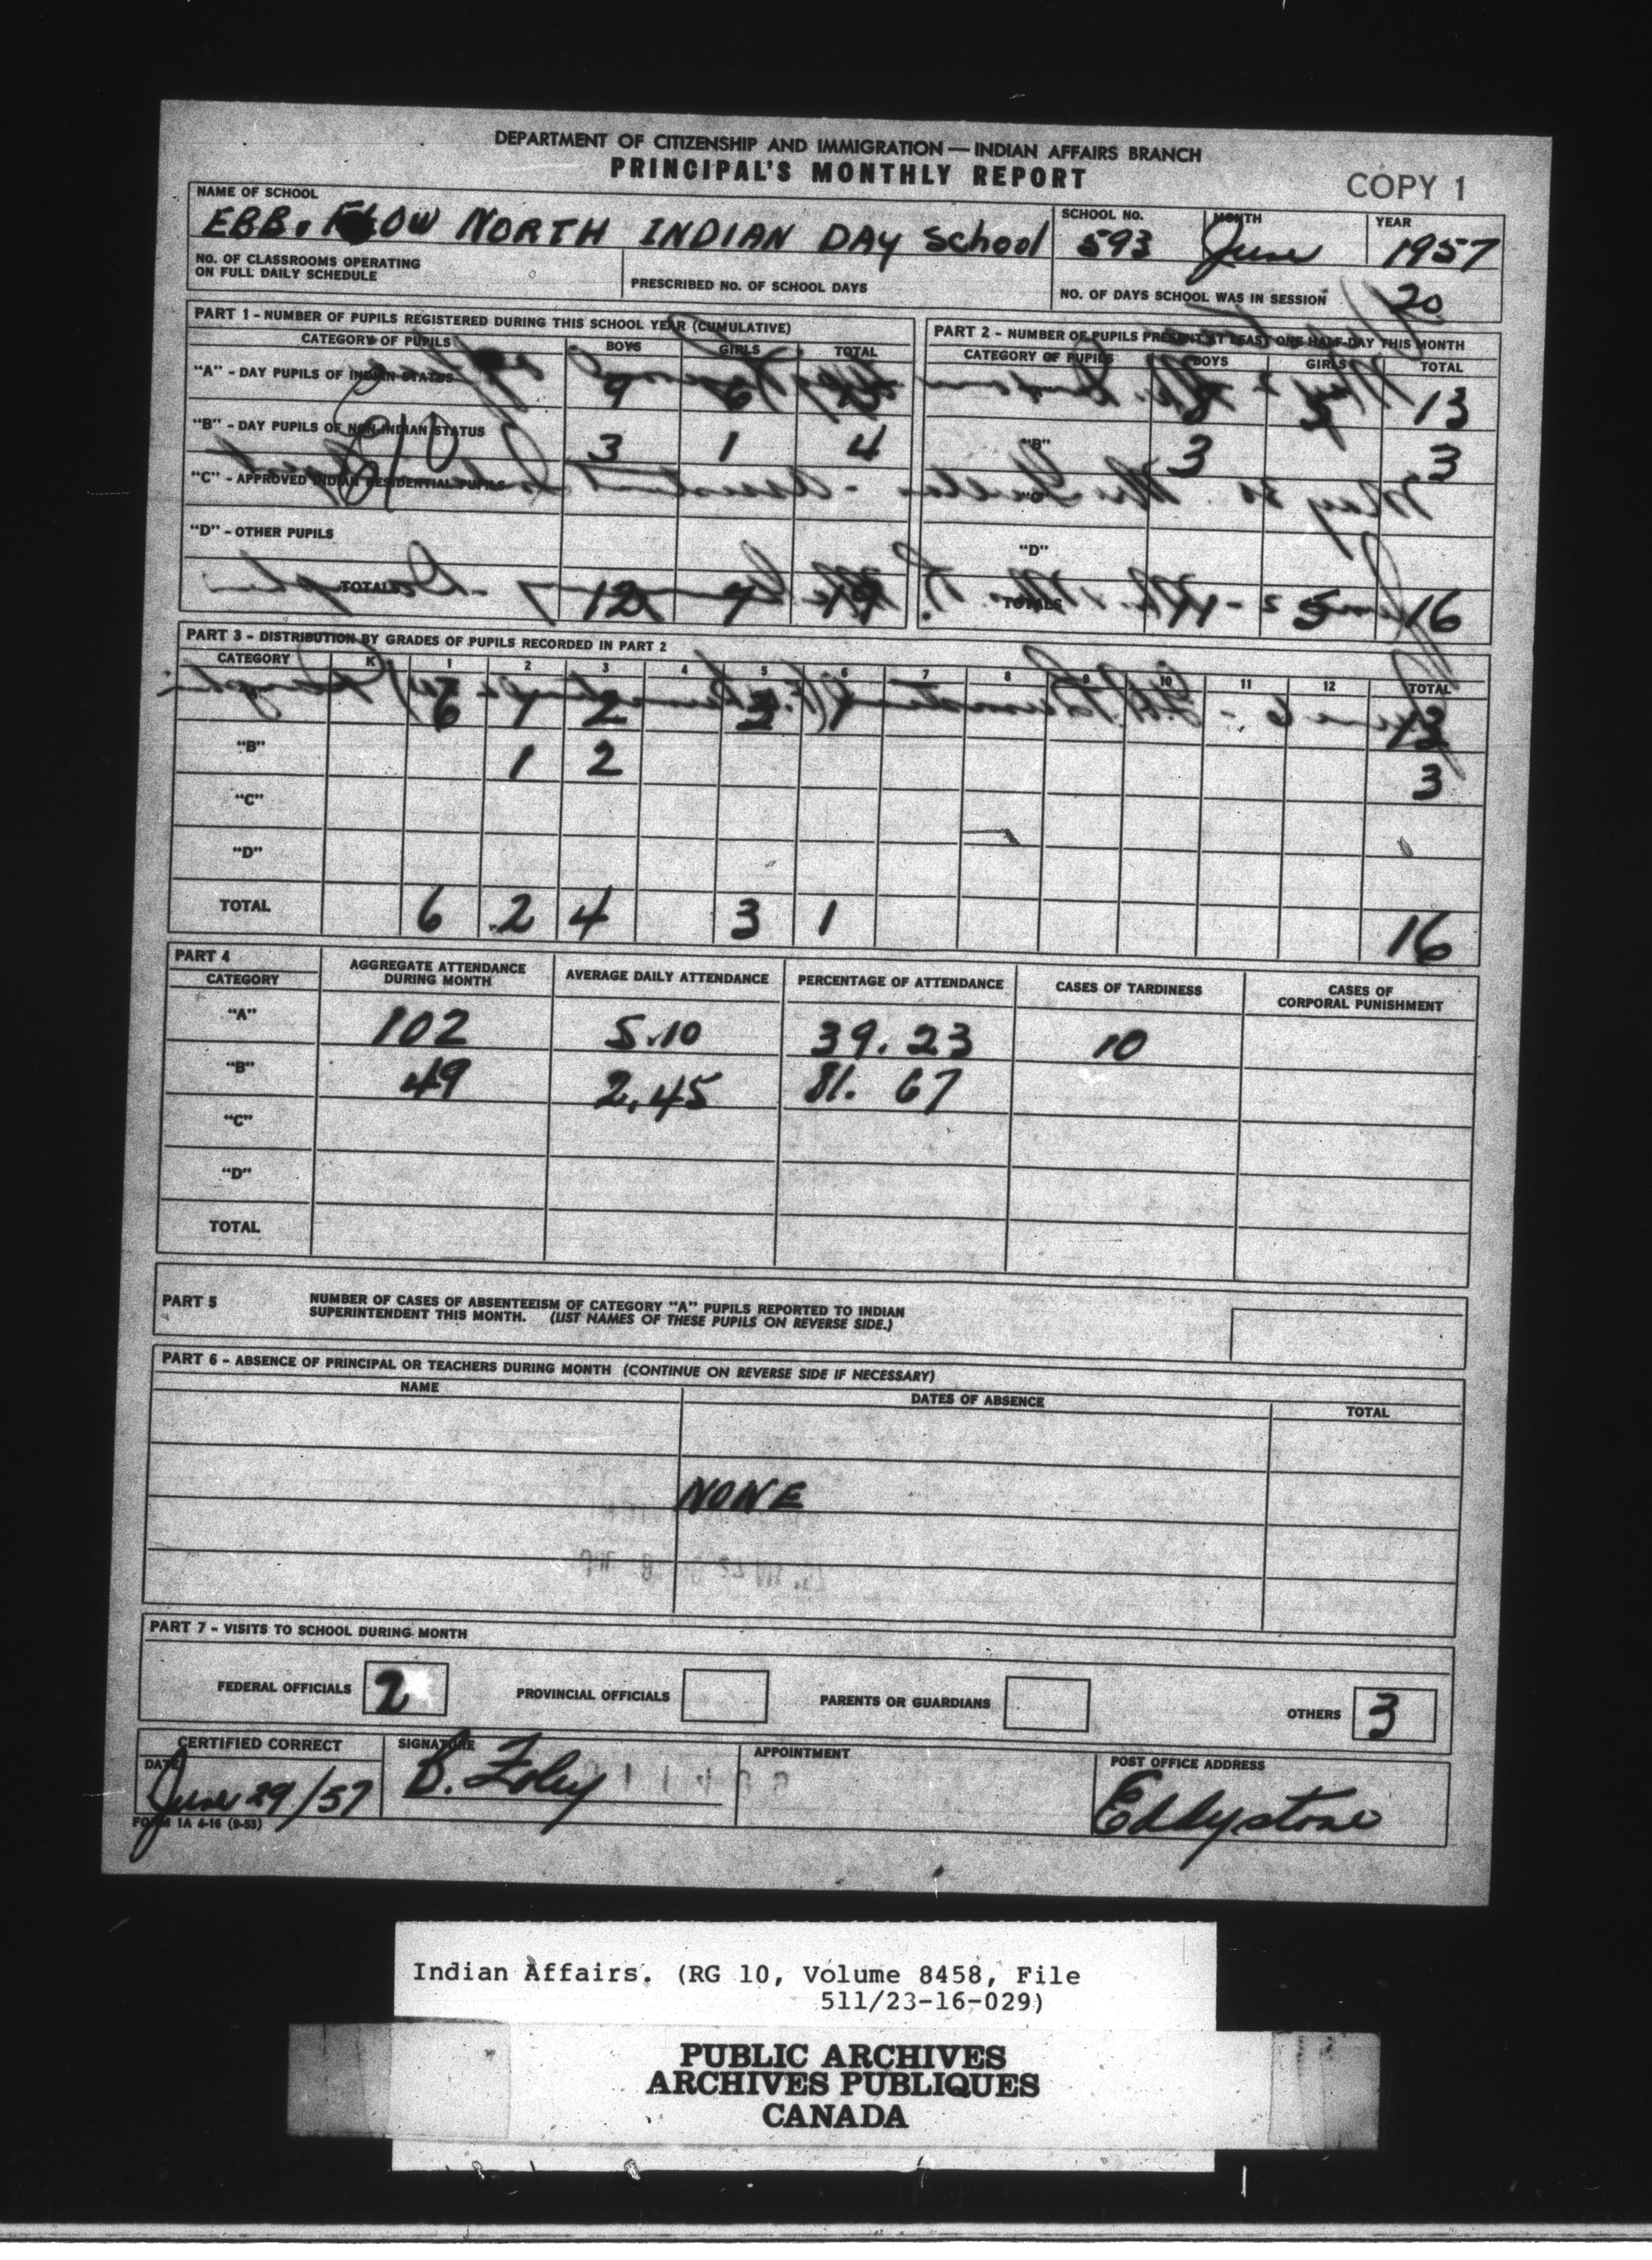 DEPARTMENT OF CITIZENSHIP AND IMMIGRATION — INDIAN AFFAIRS BRANCH
PRINCIPAL'S MONTHLY REPORT
COPY 1
NAME OF SCHOOL
EBB. FLOW NORTH INDIAN DAY School
SCHOOL NO.
593
MONTH
June
YEAR
1957
NO. OF CLASSROOMS OPERATING
ON FULL DAILY SCHEDULE
PRESCRIBED NO. OF SCHOOL DAYS
NO. OF DAYS SCHOOL WAS IN SESSION 20
PART 1 - NUMBER OF PUPILS REGISTERED DURING THIS SCHOOL YEAR (CUMULATIVE)
CATEGORY OF PUPILS BOYS GIRLS TOTAL
"A" - DAY PUPILS OF INDIAN STATUS 9 6
"B" - DAY PUPILS OF NON-INDIAN STATUS 3 1 4
"C" - APPROVED INDIAN RESIDENTIAL PUPILS
"D" - OTHER PUPILS
TOTALS 12 7 19
PART 2 - NUMBER OF PUPILS PRESENT AT LEAST ONE HALF-DAY THIS MONTH
CATEGORY OF PUPILS BOYS GIRLS TOTAL
13
"B" 3 3
"D"
TOTALS 11 5 16
PART 3 - DISTRIBUTION BY GRADES OF PUPILS RECORDED IN PART 2
CATEGORY K 1 2 3 4 5 6 7 8 9 10 11 12 TOTAL
6 1 2 3 1 13
"B" 1 2 3
"C"
"D"
TOTAL 6 2 4 3 1 16
PART 4
CATEGORY
AGGREGATE ATTENDANCE
DURING MONTH
AVERAGE DAILY ATTENDANCE
PERCENTAGE OF ATTENDANCE
CASES OF TARDINESS
CASES OF
CORPORAL PUNISHMENT
"A" 102 5.10 39.23 10
"B" 49 2.45 81.67
"C"
"D"
TOTAL
PART 5 NUMBER OF CASES OF ABSENTEEISM OF CATEGORY "A" PUPILS REPORTED TO INDIAN
SUPERINTENDENT THIS MONTH. (LIST NAMES OF THESE PUPILS ON REVERSE SIDE.)
PART 6 - ABSENCE OF PRINCIPAL OR TEACHERS DURING MONTH (CONTINUE ON REVERSE SIDE IF NECESSARY)
NAME DATES OF ABSENCE TOTAL
NONE
PART 7 - VISITS TO SCHOOL DURING MONTH
FEDERAL OFFICIALS 2 PROVINCIAL OFFICIALS PARENTS OR GUARDIANS OTHERS 3
CERTIFIED CORRECT
DATE
June 29/57
SIGNATURE
B. Foley
APPOINTMENT
POST OFFICE ADDRESS
Eddystone
FORM 1A 4-16 (9-53)
Indian Affairs. (RG 10, Volume 8458, File
511/23-16-029)
PUBLIC ARCHIVES
ARCHIVES PUBLIQUES
CANADA